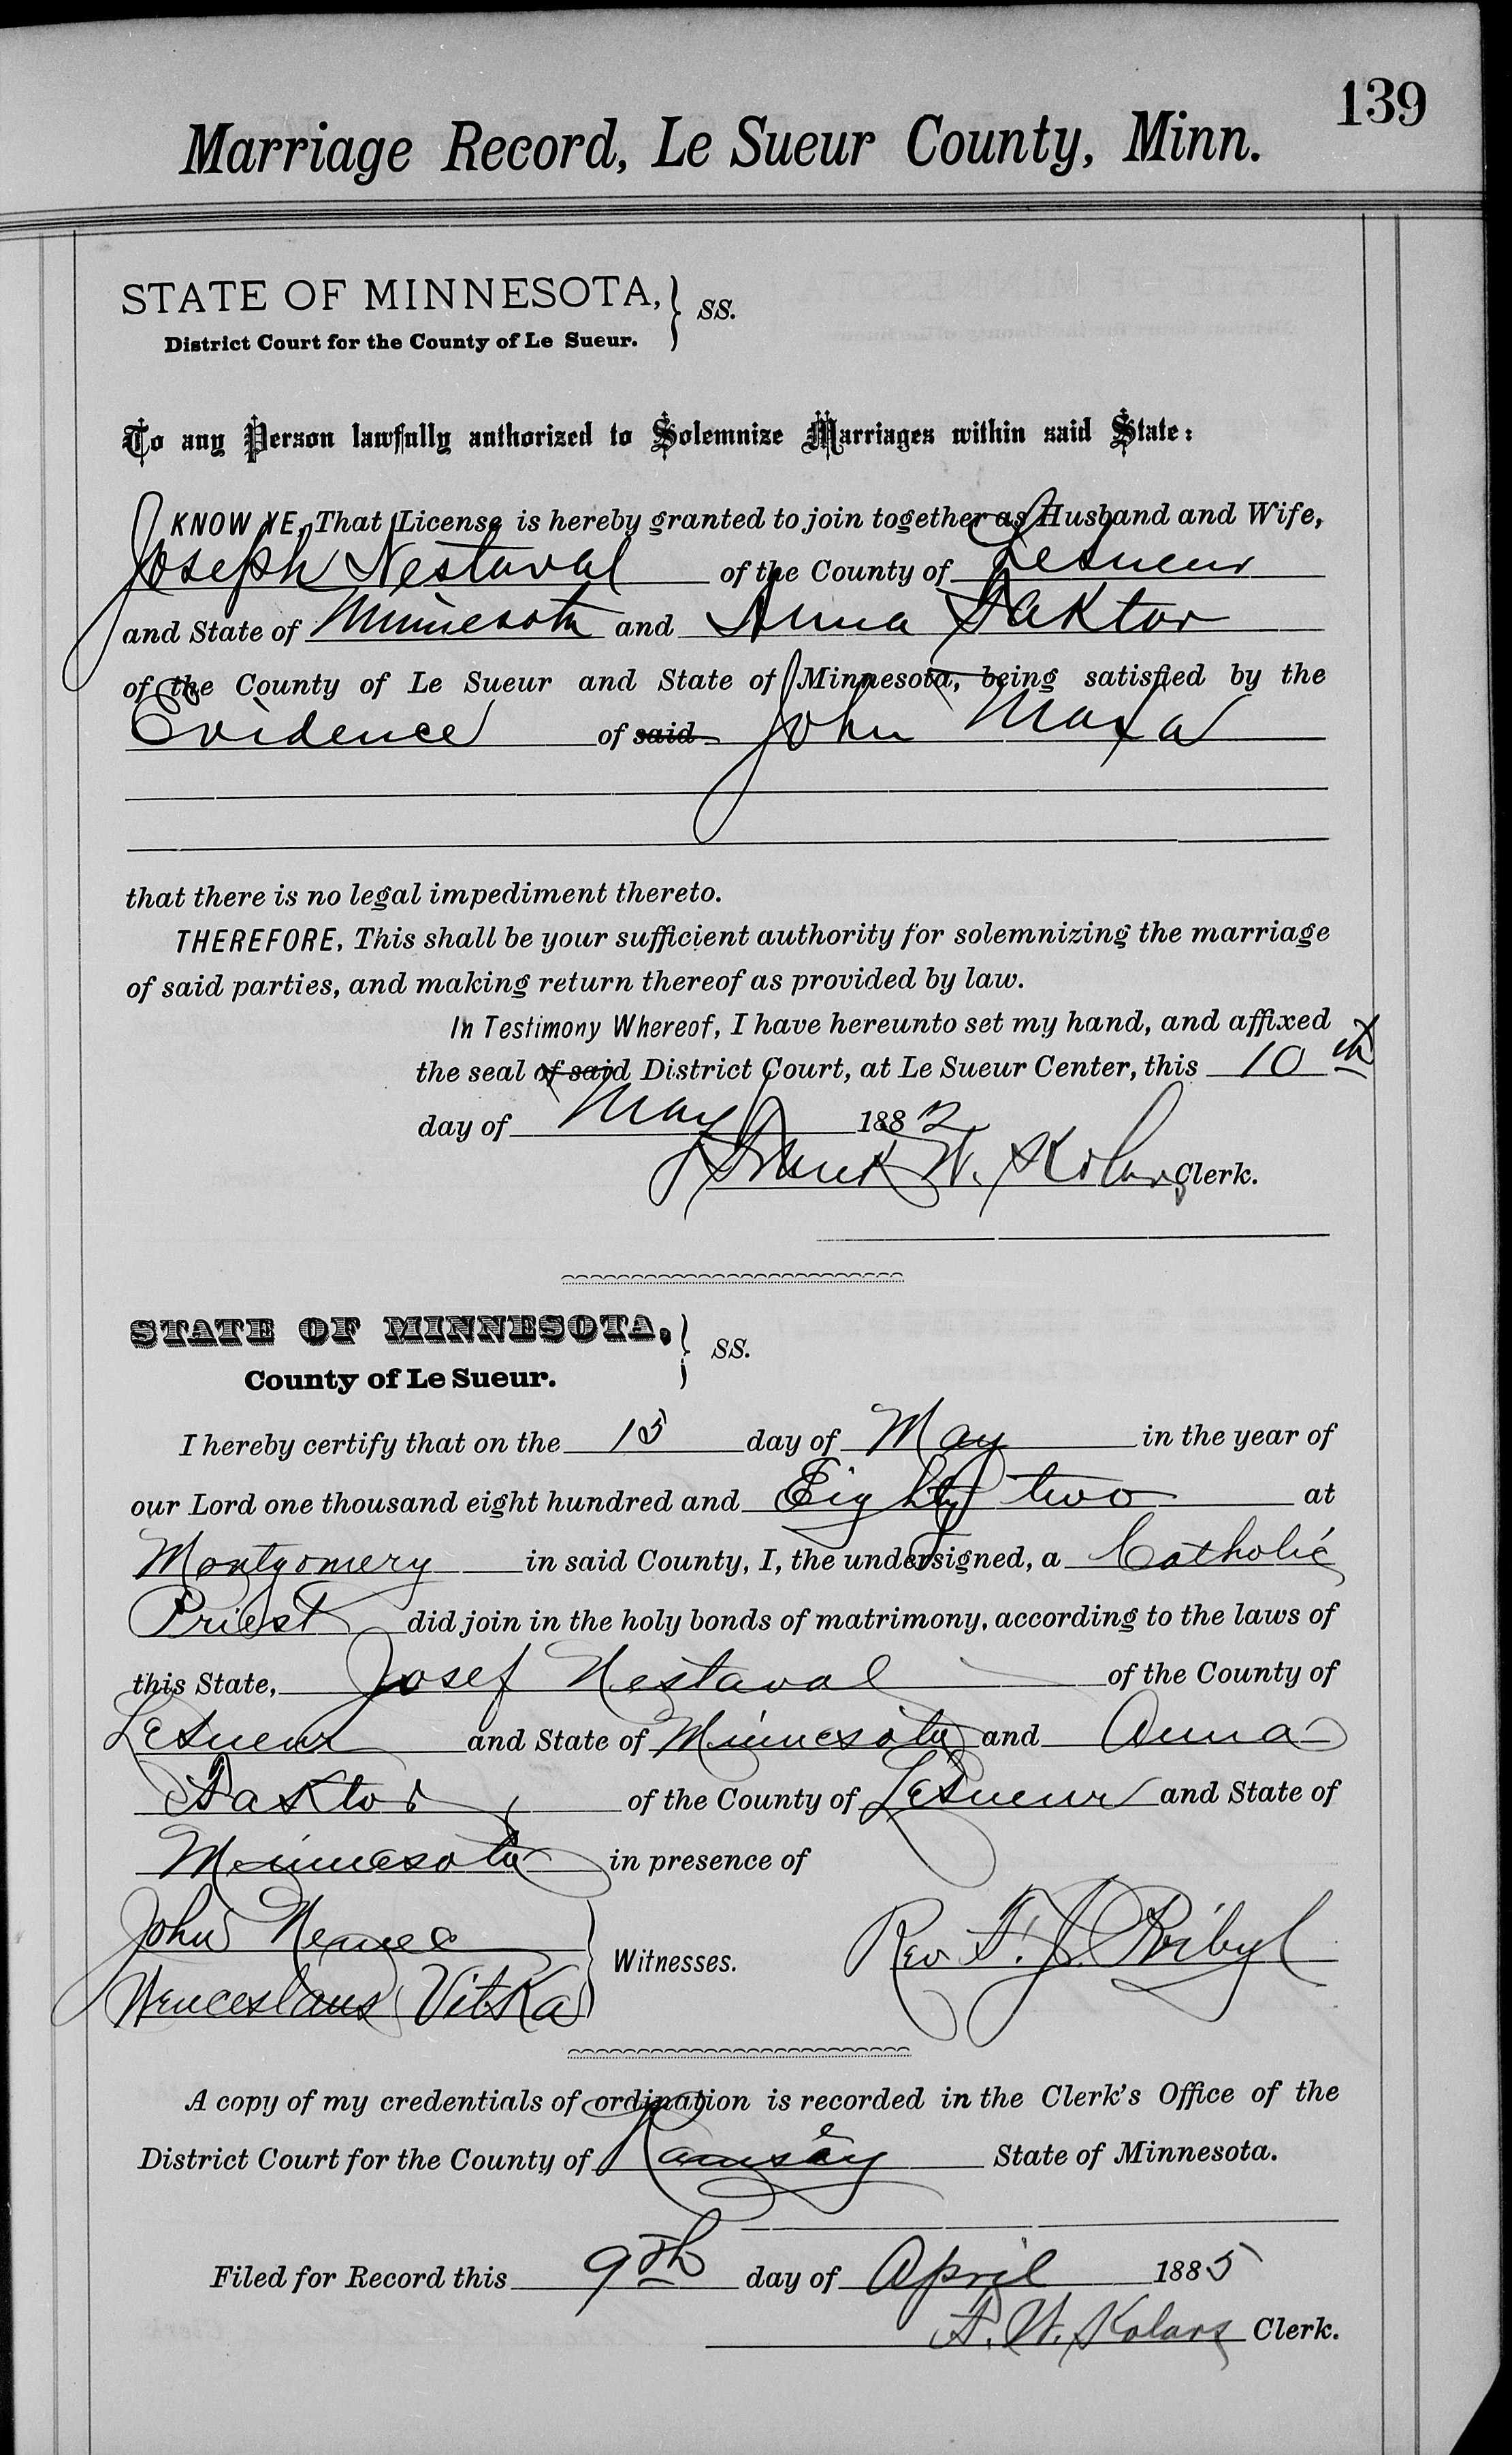 139
Marriage Record, Le Sueur County, Minn.
STATE OF MINNESOTA, } SS.
District Court for the County of Le Sueur.
To any Person lawfully authorized to Solemnize Marriages within said State:
KNOW YE, That License is hereby granted to join together as Husband and Wife,
Joseph Nestaval of the County of LeSueur
and State of Minnesota and Anna Faktor
of the County of Le Sueur and State of Minnesota, being satisfied by the
Evidence of said John Maxa
that there is no legal impediment thereto.
THEREFORE, This shall be your sufficient authority for solemnizing the marriage
of said parties, and making return thereof as provided by law.
In Testimony Whereof, I have hereunto set my hand, and affixed
the seal of said District Court, at Le Sueur Center, this 10th
day of May 1882
Frank W. Kolars Clerk.
STATE OF MINNESOTA, } SS.
County of Le Sueur.
I hereby certify that on the 15 day of May in the year of
our Lord one thousand eight hundred and Eighty two at
Montgomery in said County, I, the undersigned, a Catholic
Priest did join in the holy bonds of matrimony, according to the laws of
this State, Josef Nestaval of the County of
LeSueur and State of Minnesota and Anna
Faktor of the County of LeSueur and State of
Minnesota in presence of
John Nemec
Wenceslaus Vitska } Witnesses. Rev. F. J. Pribyl
A copy of my credentials of ordination is recorded in the Clerk's Office of the
District Court for the County of Ramsey State of Minnesota.
Filed for Record this 9th day of April 1885
F. W. Kolars Clerk.